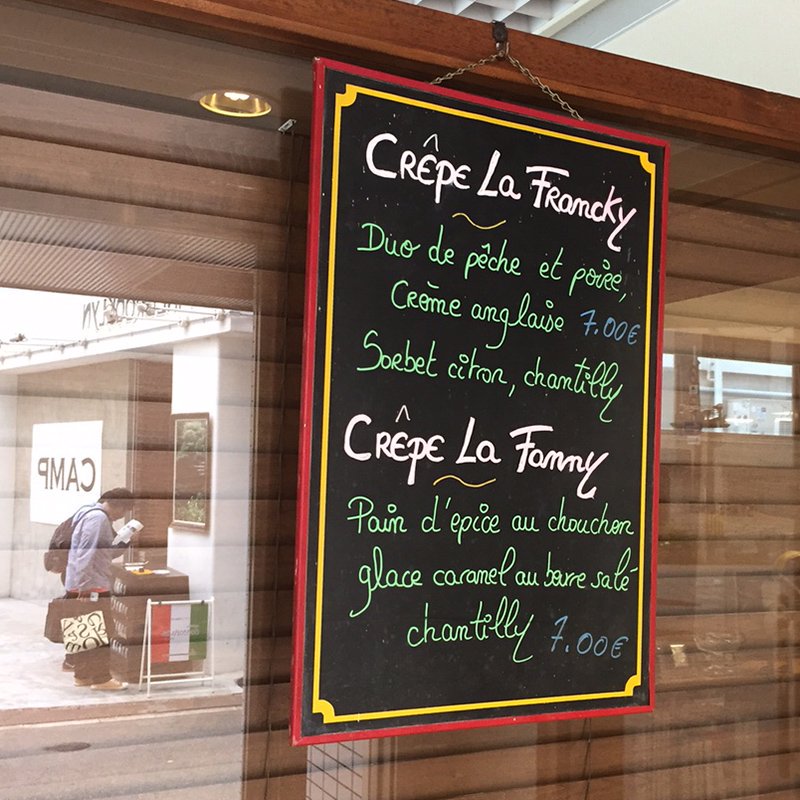 Crêpe La Francky
Duo de pêche et poire,
Crème anglaise 7.00€
Sorbet citron, chantilly
Crêpe La Fanny
Pain d'epice au chouchen
glace caramel au beurre salé
chantilly 7.00€
CAMP